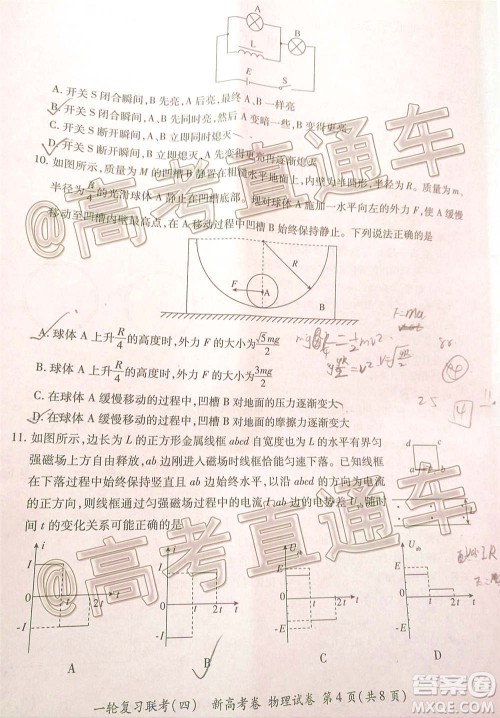 A
B
L
E
S
A. 开关 S 闭合瞬间,B 先亮,A 后亮,最终 A、B 一样亮
B. 开关 S 闭合瞬间,A、B 同时亮,然后 A 变暗一些,B 更亮
C. 开关 S 断开瞬间,A、B 同时熄灭
D. 开关 S 断开瞬间,B 立即熄灭,A 闪亮后逐渐熄灭
10. 如图所示,质量为 M 的凹槽 B 静置在粗糙水平地面上,内壁为半圆柱面,半径为 R,质量为 m,
半径为 R/4 的光滑球体 A 静止在凹槽底部。现对球体 A 施加一水平向左的外力 F,使 A 缓慢
移动至凹槽内壁最高点,在 A 移动过程中凹槽 B 始终保持静止。下列说法正确的是
R
F
A
B
A. 球体 A 上升 R/4 的高度时,外力 F 的大小为 √5mg/2
B. 球体 A 上升 R/4 的高度时,外力 F 的大小为 3mg/2
C. 在球体 A 缓慢移动的过程中,凹槽 B 对地面的压力逐渐变大
D. 在球体 A 缓慢移动的过程中,凹槽 B 对地面的摩擦力逐渐变大
F=ma
25
4
11. 如图所示,边长为 L 的正方形金属线框 abcd 自宽度也为 L 的水平有界匀
强磁场上方由自由释放,ab 边刚进入磁场时线框恰能匀速下落。已知线框
下落过程中始终保持竖直且 ab 边水平,以逆时针方向为线框中感应电流
的正方向,则线框穿过磁场的过程中的电流 i 和 ab 两端的电势差 Uab 随时
间 t 的变化关系可能正确的是
d c
a b
i I -I t 2t t
i I -I t 2t t
Uab E -E t 2t t
Uab E -E t 2t t
A B C D
一轮复习联考(四) 新高考卷 物理试卷 第 4 页(共 8 页)
@高考直通车
@高考直通车
答案圈
MXQE.COM